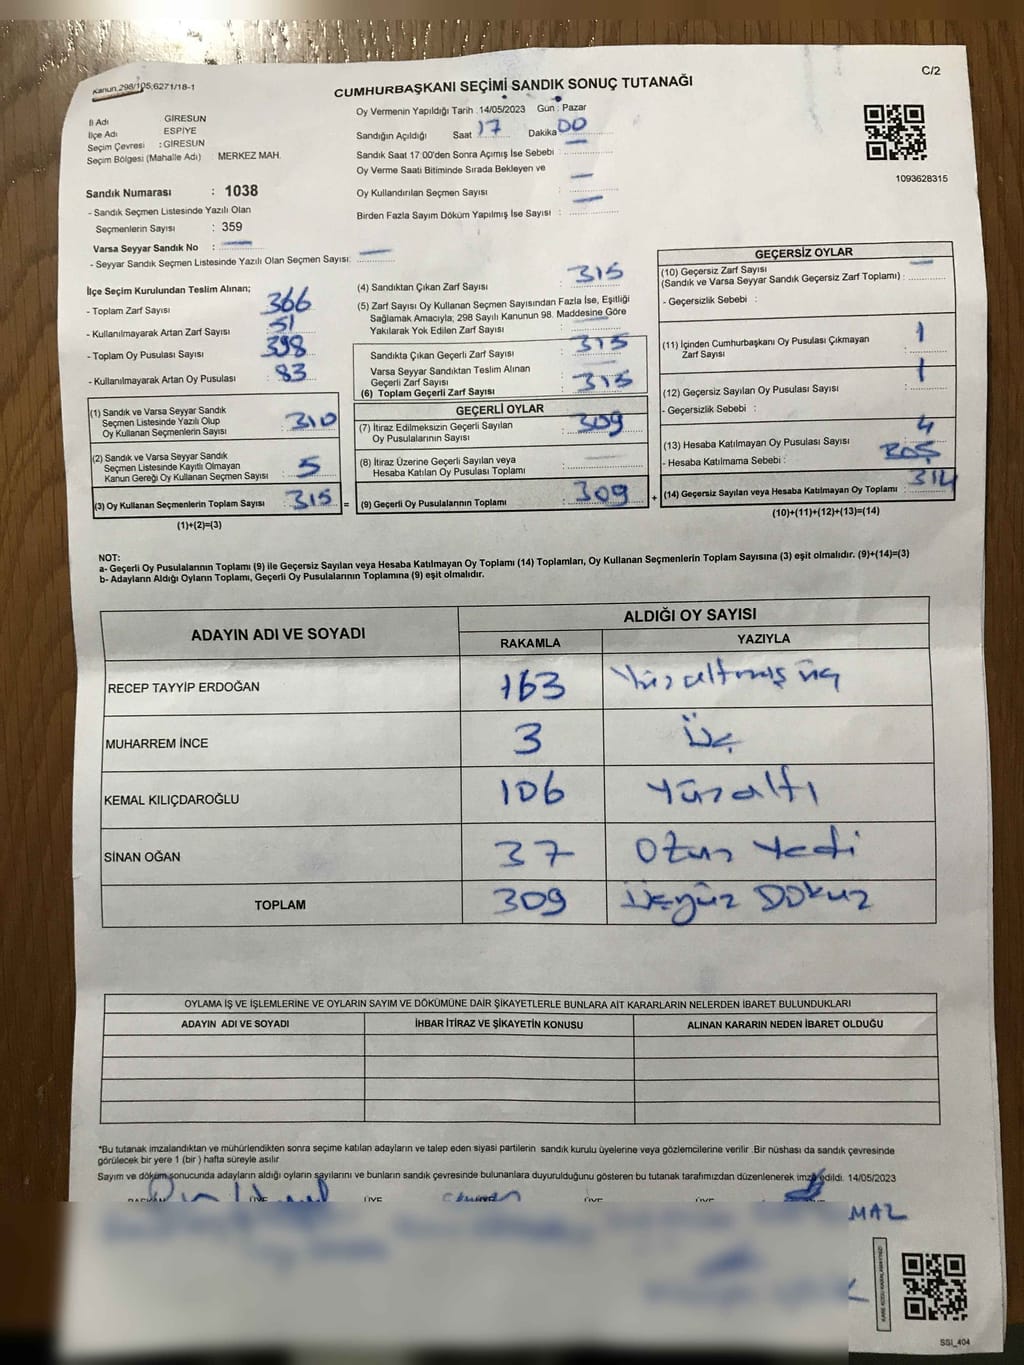 Kanun.298/105;6271/18-1
C/2
CUMHURBAŞKANI SEÇİMİ SANDIK SONUÇ TUTANAĞI
İl Adı GİRESUN
İlçe Adı ESPİYE
Seçim Çevresi : GİRESUN
Seçim Bölgesi (Mahalle Adı) : MERKEZ MAH.
Sandık Numarası : 1038
- Sandık Seçmen Listesinde Yazılı Olan
Seçmenlerin Sayısı : 359
Varsa Seyyar Sandık No :
- Seyyar Sandık Seçmen Listesinde Yazılı Olan Seçmen Sayısı:
Oy Vermenin Yapıldığı Tarih : 14/05/2023 Gün : Pazar
Sandığın Açıldığı Saat 17 Dakika 00
Sandık Saat 17:00'den Sonra Açımış İse Sebebi :
Oy Verme Saati Bitiminde Sırada Bekleyen ve
Oy Kullandırılan Seçmen Sayısı :
Birden Fazla Sayım Döküm Yapılmış İse Sayısı :
1093628315
İlçe Seçim Kurulundan Teslim Alınan;
- Toplam Zarf Sayısı : 366
- Kullanılmayarak Artan Zarf Sayısı : 51
- Toplam Oy Pusulası Sayısı : 398
- Kullanılmayarak Artan Oy Pusulası : 83
(1) Sandık ve Varsa Seyyar Sandık
Seçmen Listesinde Yazılı Olup
Oy Kullanan Seçmenlerin Sayısı : 310
(2) Sandık ve Varsa Seyyar Sandık
Seçmen Listesinde Kayıtlı Olmayan
Kanun Gereği Oy Kullanan Seçmen Sayısı : 5
(3) Oy Kullanan Seçmenlerin Toplam Sayısı : 315 =
(1)+(2)=(3)
(4) Sandıktan Çıkan Zarf Sayısı : 315
(5) Zarf Sayısı Oy Kullanan Seçmen Sayısından Fazla İse, Eşitliği
Sağlamak Amacıyla; 298 Sayılı Kanunun 98. Maddesine Göre
Yakılarak Yok Edilen Zarf Sayısı :
Sandıkta Çıkan Geçerli Zarf Sayısı : 315
Varsa Seyyar Sandıktan Teslim Alınan
Geçerli Zarf Sayısı :
(6) Toplam Geçerli Zarf Sayısı : 315
GEÇERLİ OYLAR
(7) İtiraz Edilmeksizin Geçerli Sayılan
Oy Pusulalarının Sayısı : 309
(8) İtiraz Üzerine Geçerli Sayılan veya
Hesaba Katılan Oy Pusulası Toplamı :
(9) Geçerli Oy Pusulalarının Toplamı : 309 +
GEÇERSİZ OYLAR
(10) Geçersiz Zarf Sayısı
(Sandık ve Varsa Seyyar Sandık Geçersiz Zarf Toplamı) :
- Geçersizlik Sebebi :
(11) İçinden Cumhurbaşkanı Oy Pusulası Çıkmayan
Zarf Sayısı : 1
(12) Geçersiz Sayılan Oy Pusulası Sayısı : 1
- Geçersizlik Sebebi :
(13) Hesaba Katılmayan Oy Pusulası Sayısı : 4
- Hesaba Katılmama Sebebi : BOŞ
(14) Geçersiz Sayılan veya Hesaba Katılmayan Oy Toplamı : 314
(10)+(11)+(12)+(13)=(14)
NOT:
a- Geçerli Oy Pusulalarının Toplamı (9) ile Geçersiz Sayılan veya Hesaba Katılmayan Oy Toplamı (14) Toplamları, Oy Kullanan Seçmenlerin Toplam Sayısına (3) eşit olmalıdır. (9)+(14)=(3)
b- Adayların Aldığı Oyların Toplamı, Geçerli Oy Pusulalarının Toplamına (9) eşit olmalıdır.
ADAYIN ADI VE SOYADI ALDIĞI OY SAYISI
RAKAMLA YAZIYLA
RECEP TAYYİP ERDOĞAN 163 Yüzaltmış üç
MUHARREM İNCE 3 Üç
KEMAL KILIÇDAROĞLU 106 Yüzaltı
SİNAN OĞAN 37 Otuz Yedi
TOPLAM 309 Üçyüz Dokuz
OYLAMA İŞ VE İŞLEMLERİNE VE OYLARIN SAYIM VE DÖKÜMÜNE DAİR ŞİKAYETLERLE BUNLARA AİT KARARLARIN NELERDEN İBARET BULUNDUKLARI
ADAYIN ADI VE SOYADI İHBAR İTİRAZ VE ŞİKAYETİN KONUSU ALINAN KARARIN NEDEN İBARET OLDUĞU
*Bu tutanak imzalandıktan ve mühürlendikten sonra seçime katılan adayların ve talep eden siyasi partilerin sandık kurulu üyelerine veya gözlemcilerine verilir. Bir nüshası da sandık çevresinde
görülecek bir yere 1 (bir) hafta süreyle asılır
Sayım ve döküm sonucunda adayların aldığı oyların sayılarını ve bunların sandık çevresinde bulunanlara duyurulduğunu gösteren bu tutanak tarafımızdan düzenlenerek imza edildi. 14/05/2023
BAŞKAN ÜYE ÜYE ÜYE ÜYE
MAZ
SSI_404